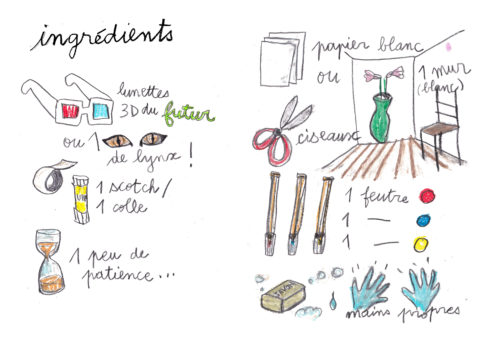 ingrédients
lunettes
3D du futur
ou 1
de lynx !
1 scotch /
1 colle
1 peu de
patience...
papier blanc
ou
1 mur
(blanc)
ciseaux
1 feutre
1 —
1 —
mains propres